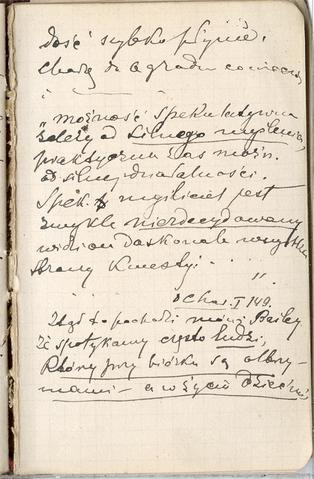 dość szybko płynie.
Chodzę do Ogrodu co wieczór
„możność spekulatywna
zależy od silnego myślenia,
praktyczna zaś możn.
od silnej działalności.
Spek. myśliciel jest
zwykle niezdecydowany
widząc doskonale wszystkie
strony kwestyi . . .
"
o Char. I 149.
Ztąd to pochodzi mówi Bailey
że spotykamy często ludzi,
którzy przy biórku są olbrzy-
mami - a w życiu dziećmi